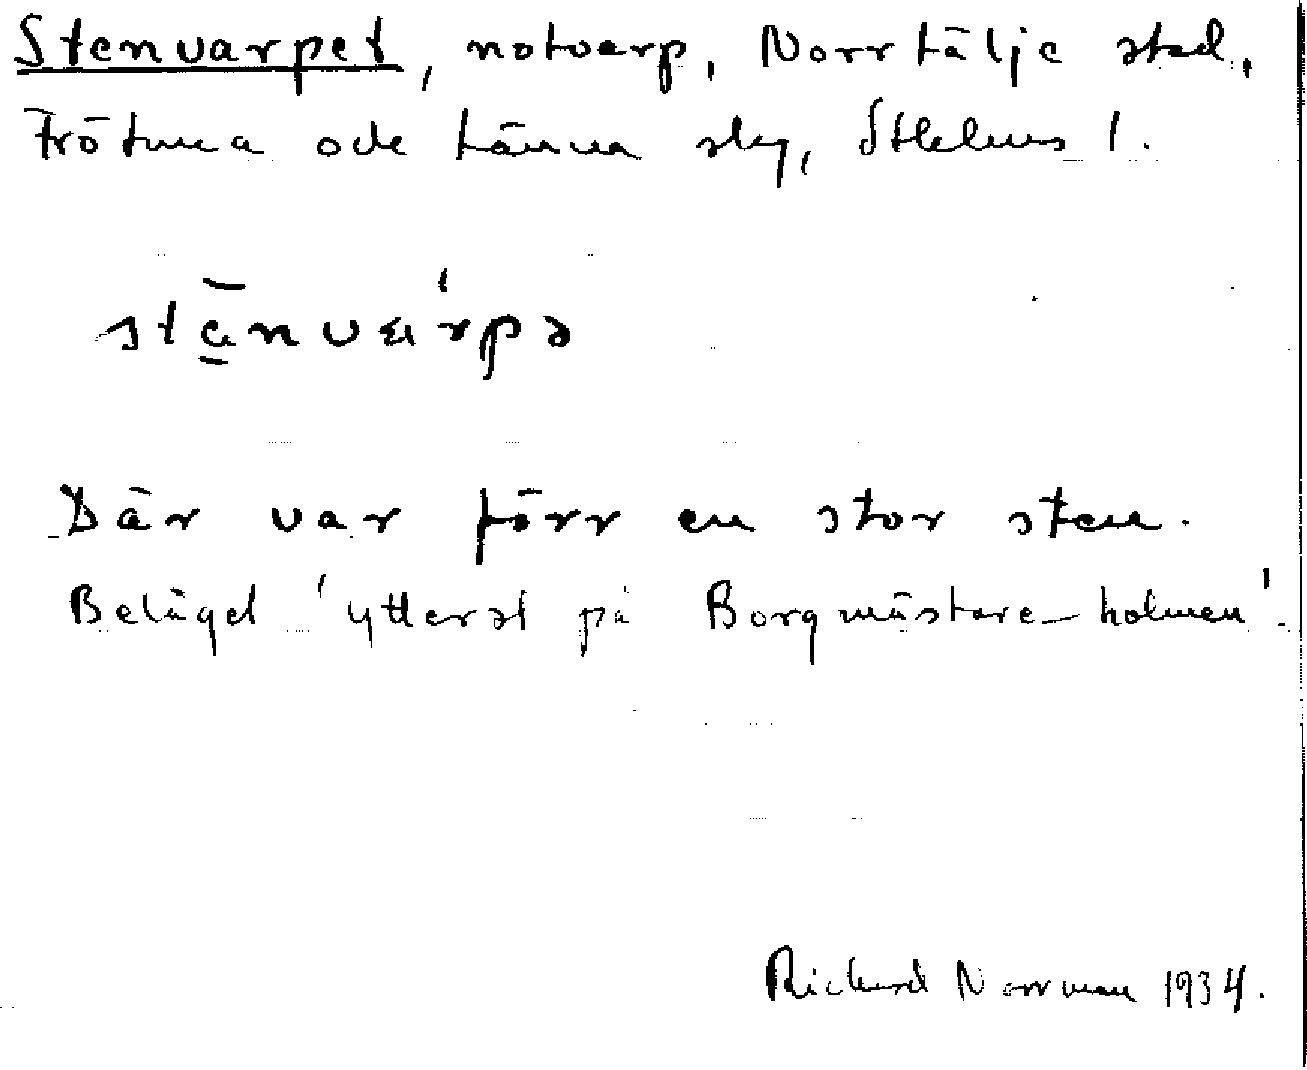 Stenvarpet, notvarp, Norrtälje stad,
Frötuna och Länna slg, Sthlms l.
Där var förr en stor sten.
Beläget 'ytterst på Borgmästare-holmen'.
Richard Norrman 1934.